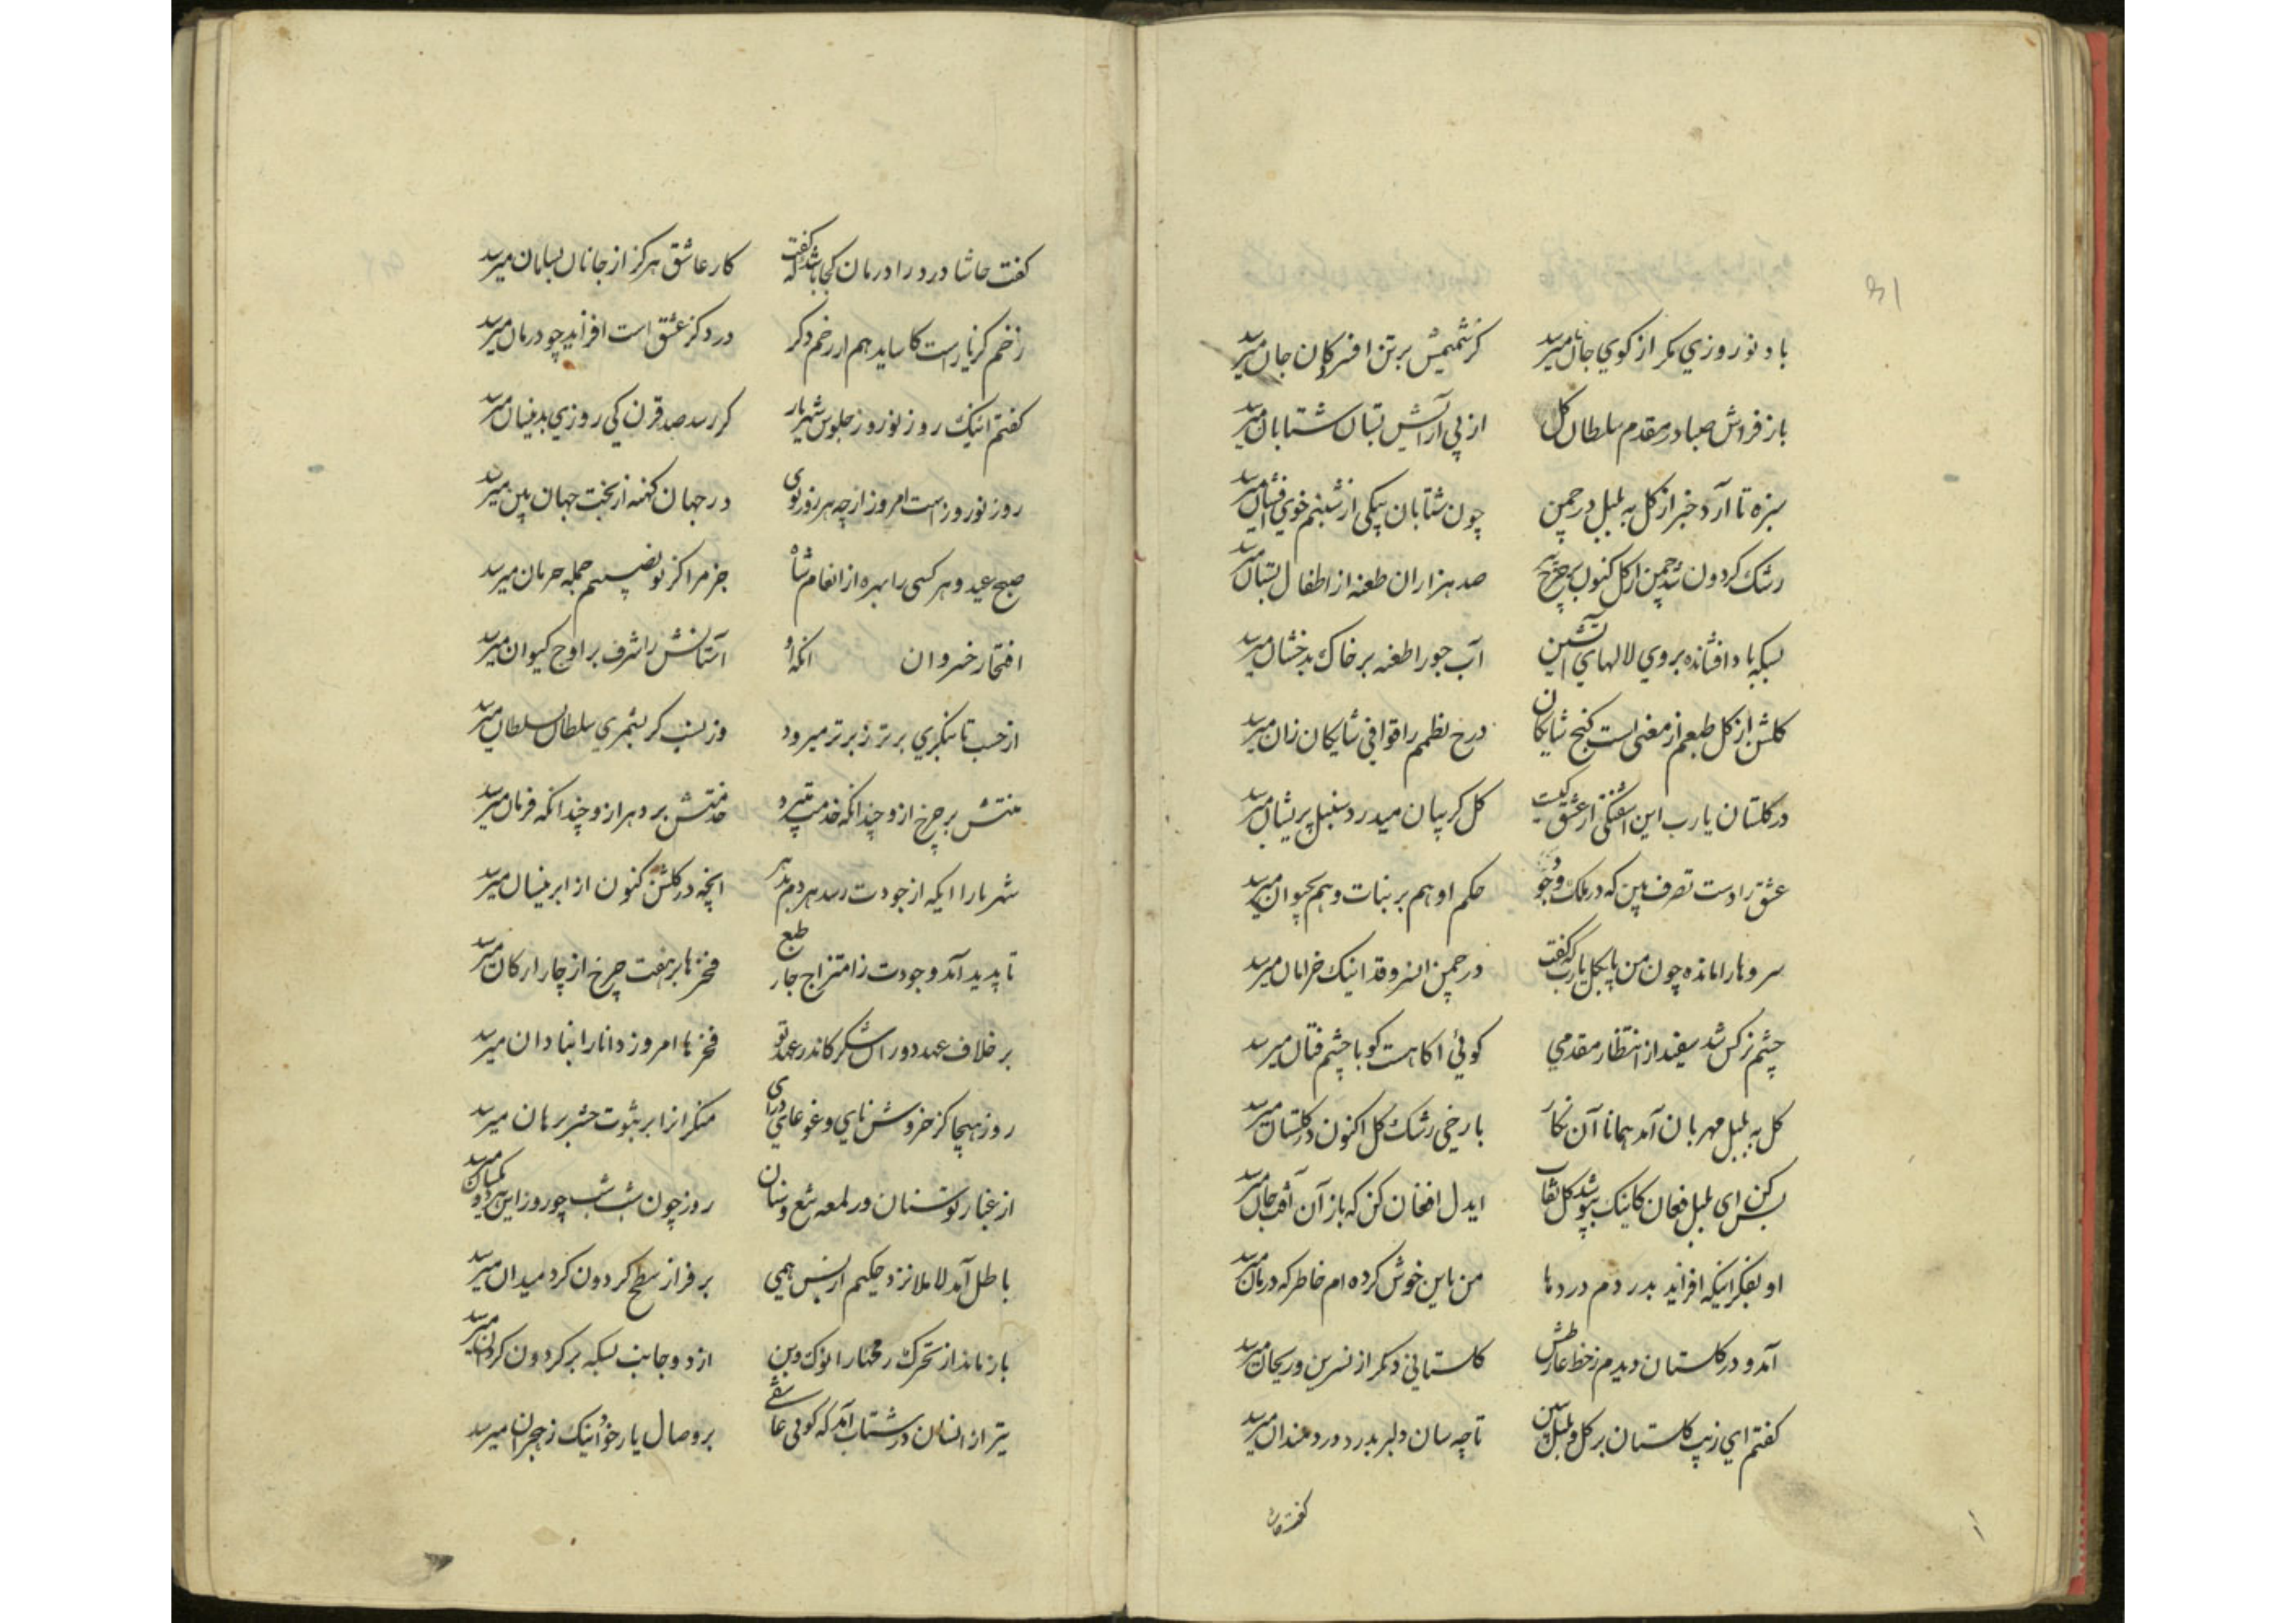 باد نوروزی مگر از کوی جانان میرسد کز شمیمش بر تن افسردگان جان میرسد
باز فراش صبا در مقدم سلطان کل از پی آرایش بستان شتابان میرسد
سبزه تا آرد خبر از کل به بلبل در چمن چون شتابان پیکی از شبنم خوی افشان میرسد
رشک کردون شد چمن از کل کنون بر چرخ پیر صد هزاران طعنه از اطفال بستان میرسد
بسکه باد افشانده بر روی لالهای آتشین آب جو را طعنه بر خاک بدخشان میرسد
کلشن از کل طبعم از معنی است کنج شایکان درج نظمم را قوافی شایکان زان میرسد
در کلستان یا رب این آشفتکی از عشق کیست کل کریبان میدرد سنبل پریشان میرسد
عشق را دست تصرف بین که در ملک وجود حکم او هم بر نبات و هم بحیوان میرسد
سروها را مانده چون من پا بکل یا رب که گفت در چمن آن سرو قد اینک خرامان میرسد
چشم نرکس شد سفید از انتظار مقدمی کوئی آکاهست کو با چشم فتان میرسد
کل به بلبل مهربان آمد همانا آن نکار با رخی رشک کل اکنون در کلستان میرسد
بس کن ای بلبل فغان کاینک بپوشد کل نقاب ایدل افغان کن که باز آن آفت جان میرسد
او بفکر اینکه افزاید بدردم دردها من باین خوش کرده ام خاطر که درمان میرسد
آمد و در کلستان دیدم ز خط عارضش کلستانی دکر از نسرین و ریحان میرسد
کفتم ای زیب کلستان بر کل و بلبل ببین تا چه سان دلبر بدرد دردمندان میرسد
کفت حاشا
کفت حاشا درد را درمان کجا باشد که کفت کار عاشق هرکز از جانان بسامان میرسد
زخم کز یار است کاساید هم از زخم دکر درد کز عشق است افزاید چو درمان میرسد
کفتم اینک روز نوروز و جلوس شهریار کز رسد صد قرن یکی روزی بدینسان میرسد
روز نوروز است امروز ار چه هر روز نوی در جهان کهنه از بخت جهانبین میرسد
صبح عید و هر کسی را بهره از انعام شاه جز مرا کز نو نصیبم جمله حرمان میرسد
افتخار خسروان آنکه او آستانش را شرف بر اوج کیوان میرسد
از حسب تا بنکری برتر ز برتر میرود وز نسب کر بشمری سلطان بسلطان میرسد
منتش بر چرخ ازو چندانکه خدمت میبرد خدمتش بر دهر ازو چندانکه فرمان میرسد
شهریارا ایکه از جودت رسد هر دم بدهر آنچه در کلشن کنون از ابر نیسان میرسد
تا پدید آمد وجودت ز امتزاج چار طبع فخرها بر هفت چرخ از چار ارکان میرسد
بر خلاف عهد دوران شکر کاندر عهد تو فخرها امروز دانا را بنادان میرسد
روز هیجا کز خروش نای و غوغای درای منکرانرا بر ثبوت حشر برهان میرسد
از غبار توسنان ور لمعه تیغ و سنان روز چون شب شب چو روز این هر دو یکسان میرسد
باطل آمد لا ملا نزد حکیم از بس همی بر فراز سطح کردون کرد میدان میرسد
باز ماند از تحرک رمحها را نوک و بن از دو جانب بسکه بر کردون کردان میرسد
تیر از انسان در شتاب آمد که کوئی عاشقی بر وصال یار خود اینک ز هجران میرسد